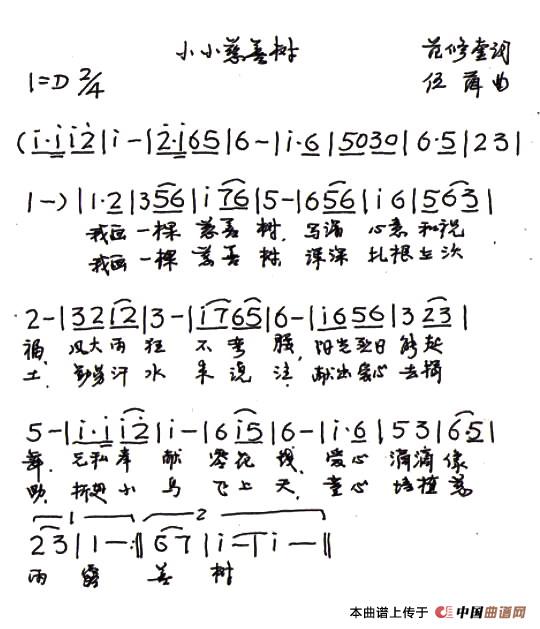 小小慈善树
范修奎词
1=D 2/4
伍 曲
(i·i i2|i-|2·i65|6-|i·6|5030|6·5|23|
1-)|1·2|356|i76|5-|656|i6|563|
我画一棵 慈善 树, 写满 心意 和祝
我画一棵 慈善 树, 深深 扎根
2-|32i2|3-|i765|6-|i656|3 23|
福, 风大雨狂 不弯 腰,
土, 汗水 来 献出爱心 去
5-|i·i i2|i-|6i5|6-|i·6|53|65|
舞, 无私奉献 爱心 滴滴 像
小鸟 飞上天, 童心 培植 慈
1 2
23|1-:‖67|i-|i-‖
雨露 善树
本曲谱上传于 中国曲谱网